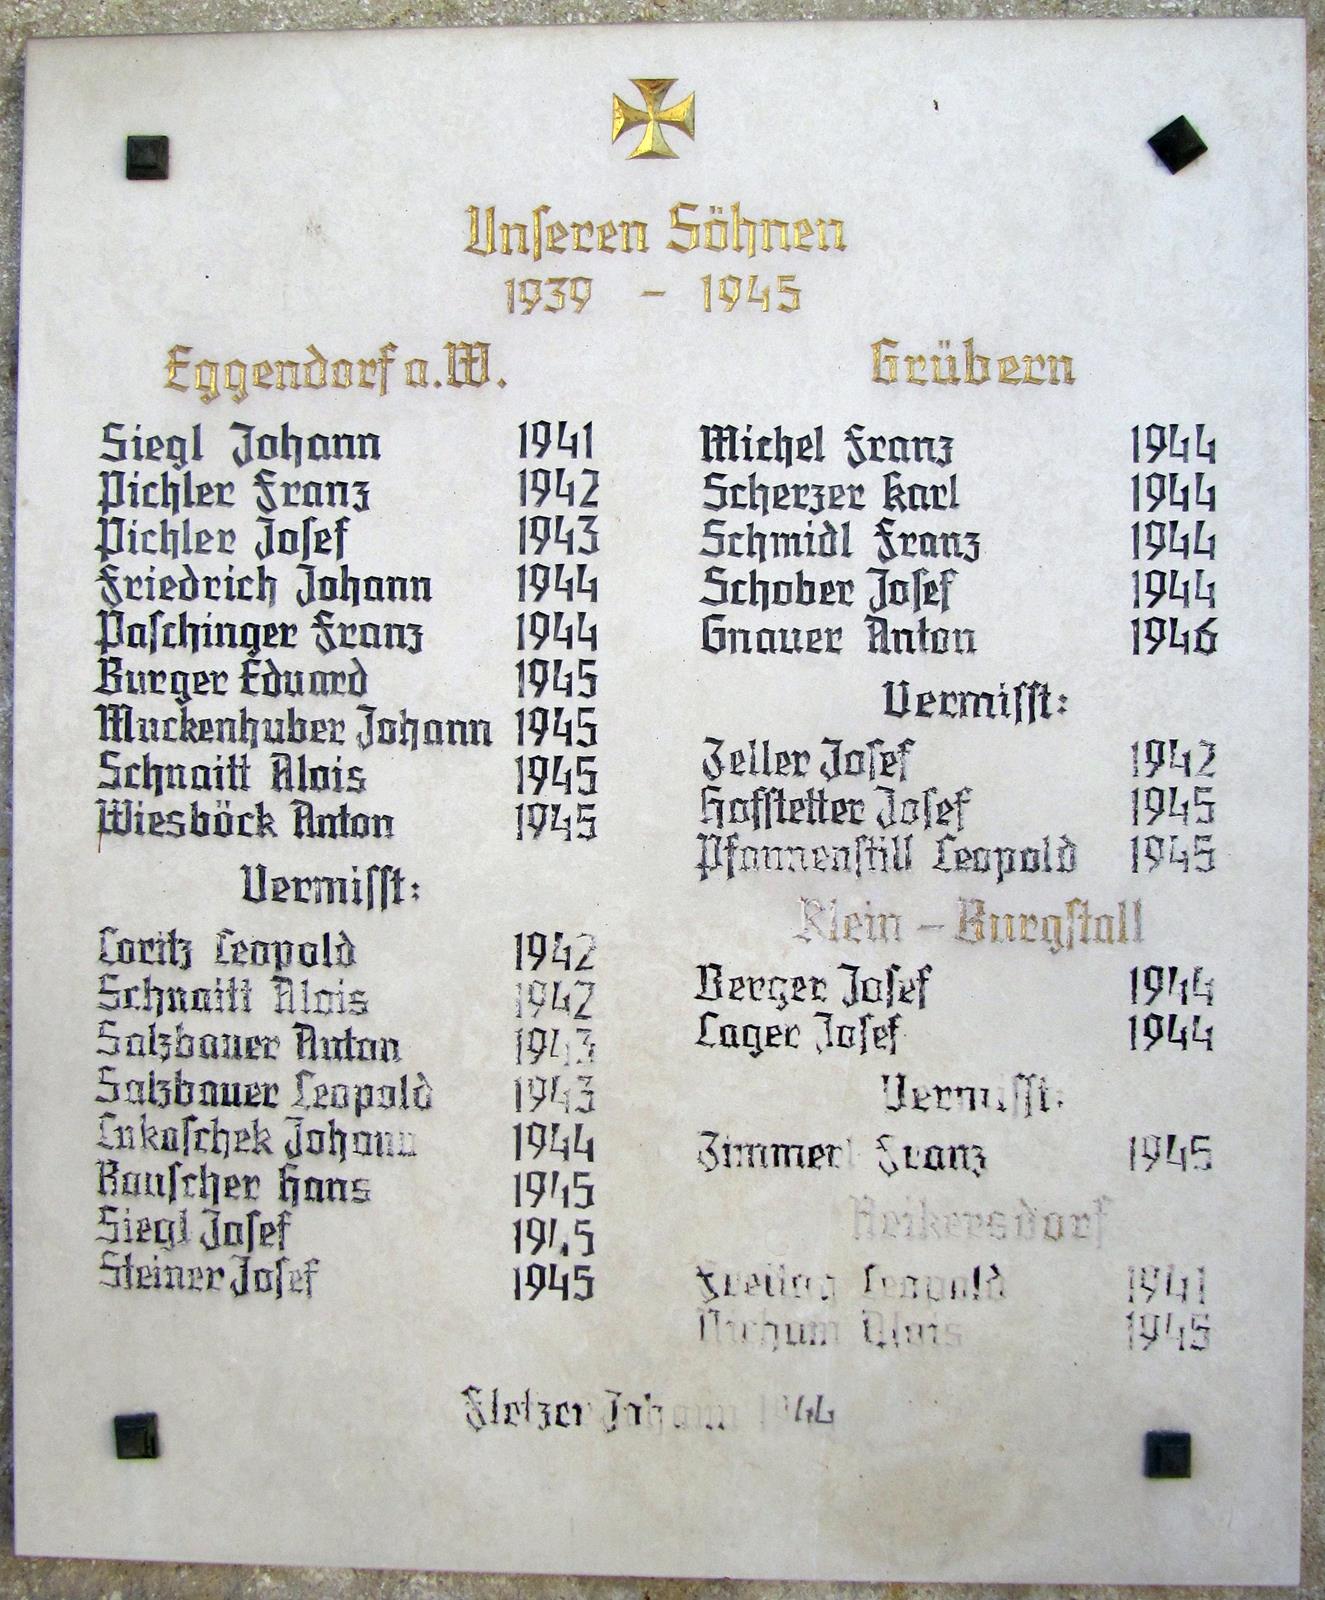 Unseren Söhnen
1939 - 1945
Eggendorf a.W.
Siegl Johann 1941
Pichler Franz 1942
Pichler Josef 1943
Friedrich Johann 1944
Paschinger Franz 1944
Burger Eduard 1945
Muckenhuber Johann 1945
Schnaitt Alois 1945
Wiesböck Anton 1945
Vermisst:
Loritz Leopold 1942
Schnaitt Alois 1942
Salzbauer Anton 1943
Salzbauer Leopold 1943
Lukaschek Johann 1944
Rauscher Hans 1945
Siegl Josef 1945
Steiner Josef 1945
Grübern
Michel Franz 1944
Scherzer Karl 1944
Schmidl Franz 1944
Schober Josef 1944
Gnauer Anton 1946
Vermisst:
Zeller Josef 1942
Hofstetter Josef 1945
Pfannenstill Leopold 1945
Klein - Burgstall
Berger Josef 1944
Lager Josef 1944
Vermisst:
Zimmerl Franz 1945
Reikersdorf
Freitag Leopold 1941
Alois 1945
Fletzer Johann 1944